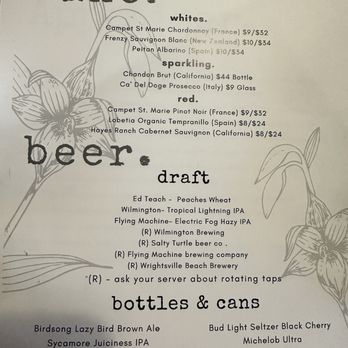 wine.
whites.
Campet St Marie Chardonnay (France) $9/$32
Frenzy Sauvignon Blanc (New Zealand) $10/$34
Peitan Albarino (Spain) $10/$34
sparkling.
Chandon Brut (California) $44 Bottle
Ca' Del Doge Prosecco (Italy) $9 Glass
red.
Campet St. Marie Pinot Noir (France) $9/$32
Labetia Organic Tempranillo (Spain) $8/$24
Hayes Ranch Cabernet Sauvignon (California) $8/$24
beer.
draft
Ed Teach - Peaches Wheat
Wilmington- Tropical Lightning IPA
Flying Machine- Electric Fog Hazy IPA
(R) Wilmington Brewing
(R) Salty Turtle beer co .
(R) Flying Machine brewing company
(R) Wrightsville Beach Brewery
*(R) - ask your server about rotating taps
bottles & cans
Birdsong Lazy Bird Brown Ale
Sycamore Juiciness IPA
Bud Light Seltzer Black Cherry
Michelob Ultra